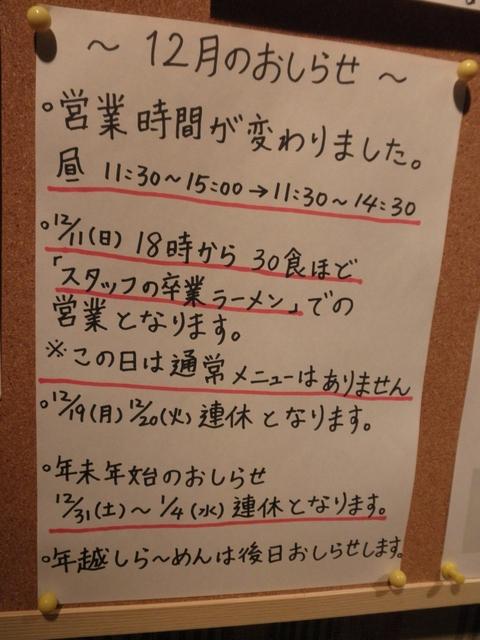 ～ 12月のおしらせ ～
○営業時間が変わりました。
昼 11:30～15:00→11:30～14:30
○12/11(日) 18時から 30食ほど
「スタッフの卒業ラーメン」での
営業となります。
※この日は通常メニューはありません
○12/19(月) 12/20(火) 連休となります。
○年末年始のおしらせ
12/31(土)～1/4(水) 連休となります。
○年越しら～めんは後日おしらせします。